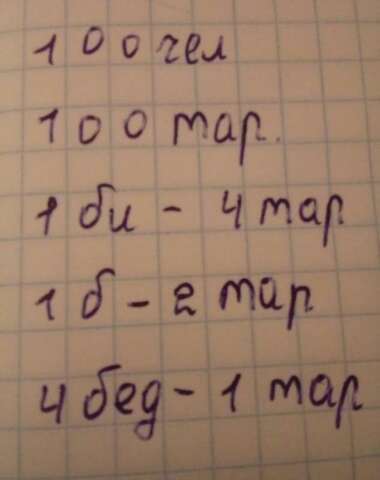 100 чел
100 тар.
1 би - 4 тар
1 б - 2 тар
4 бед - 1 тар